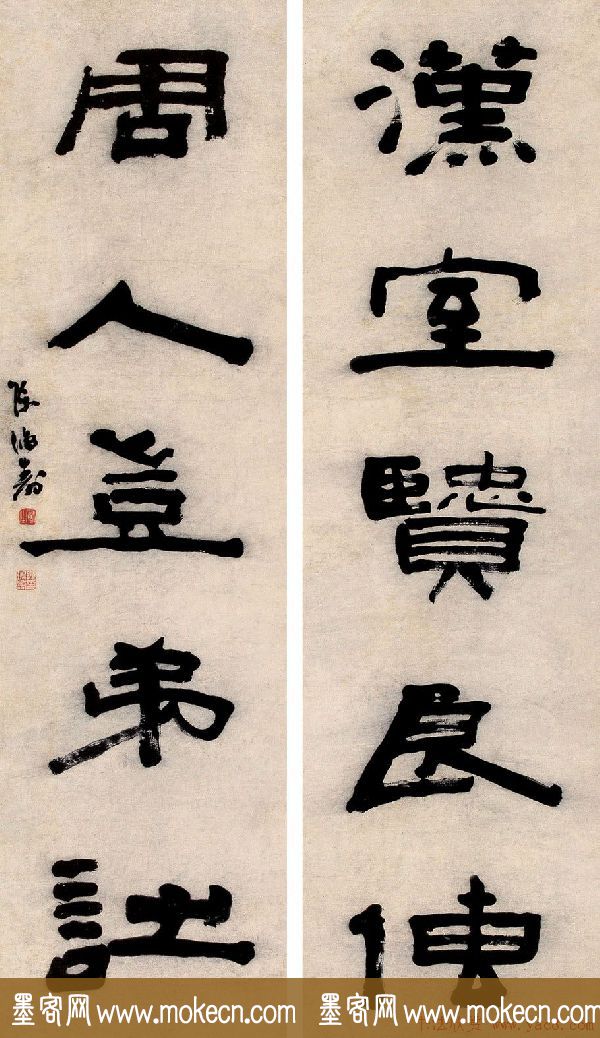 漢室賢良傳
周人豈弟詩
陳鴻壽
墨客网 www.mokecn.com
墨客网 www.mokecn.com